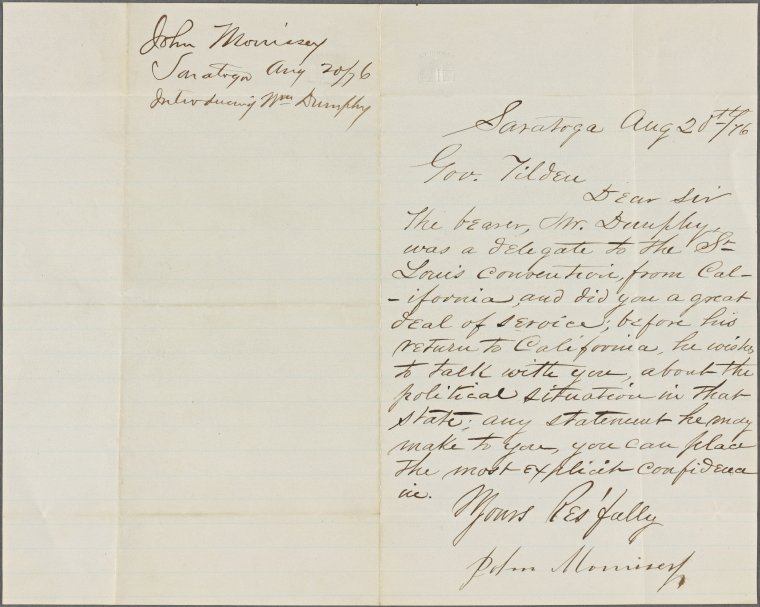 John Morrissey
Saratoga Aug 20/76
Introducing Wm Dunphy
Saratoga Aug 20th/76
Gov. Tilden
Dear Sir
The bearer, Mr. Dunphy,
was a delegate to the St
Louis convention, from Cal-
-ifornia, and did you a great
deal of service; before his
return to California, he wishes
to talk with you, about the
political situation in that
state; any statement he may
make to you, you can place
the most explicit confidence
in.
Yours Res'fully
John Morrissey